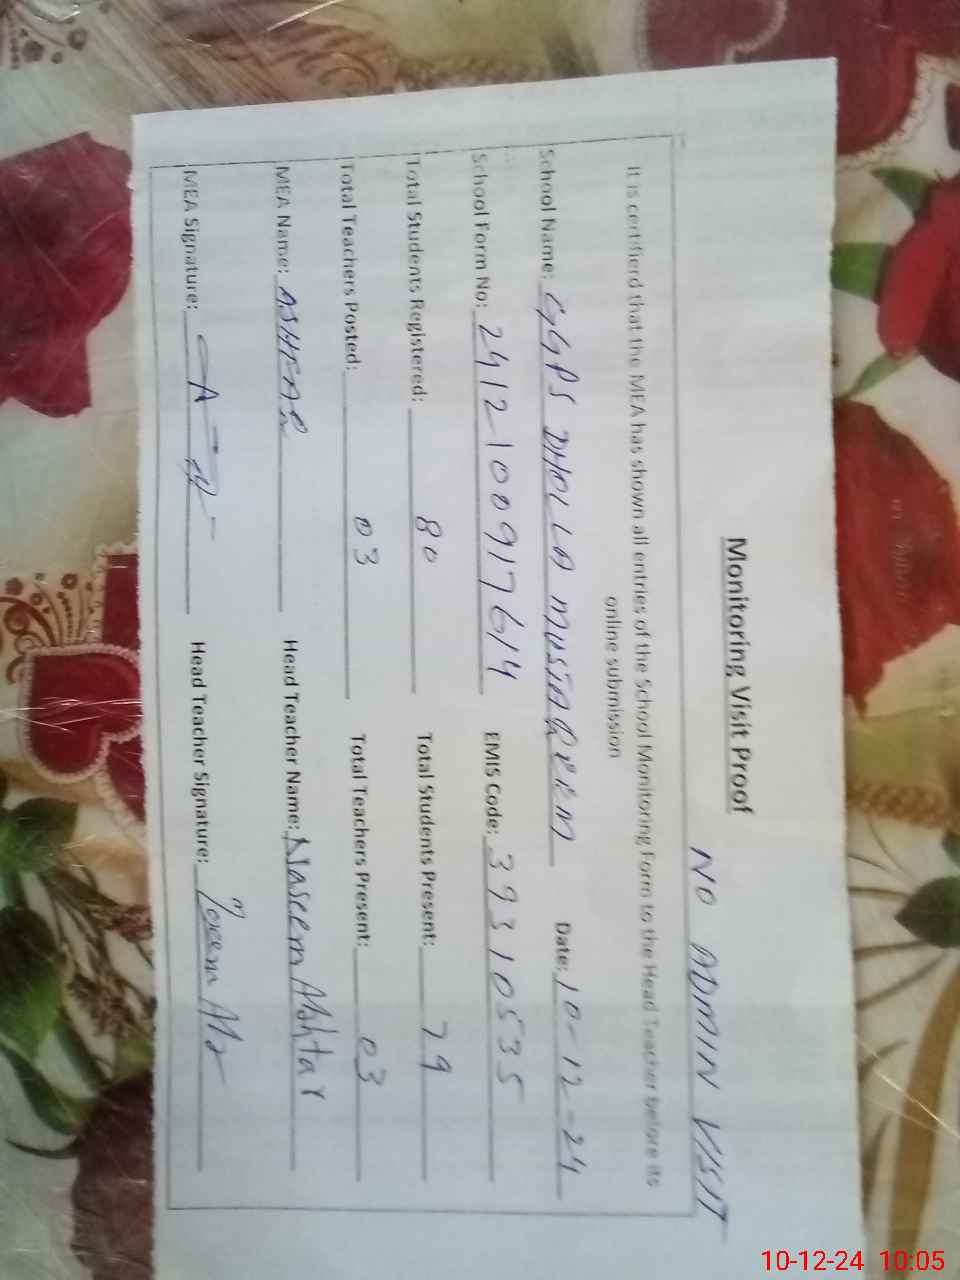 Monitoring Visit Proof
NO ADMIN VISIT
It is certifierd that the MEA has shown all entries of the School Monitoring Form to the Head Teacher before its
online submission
School Name: GGPS DHOLLA MUSTAQEEM Date: 10-12-24
School Form No: 2412100917614 EMIS Code: 39310535
Total Students Registered: 80 Total Students Present: 79
Total Teachers Posted: 03 Total Teachers Present: 03
MEA Name: ASHFAQ Head Teacher Name: Naseem Akhtar
MEA Signature: Head Teacher Signature:
10-12-24 10:05